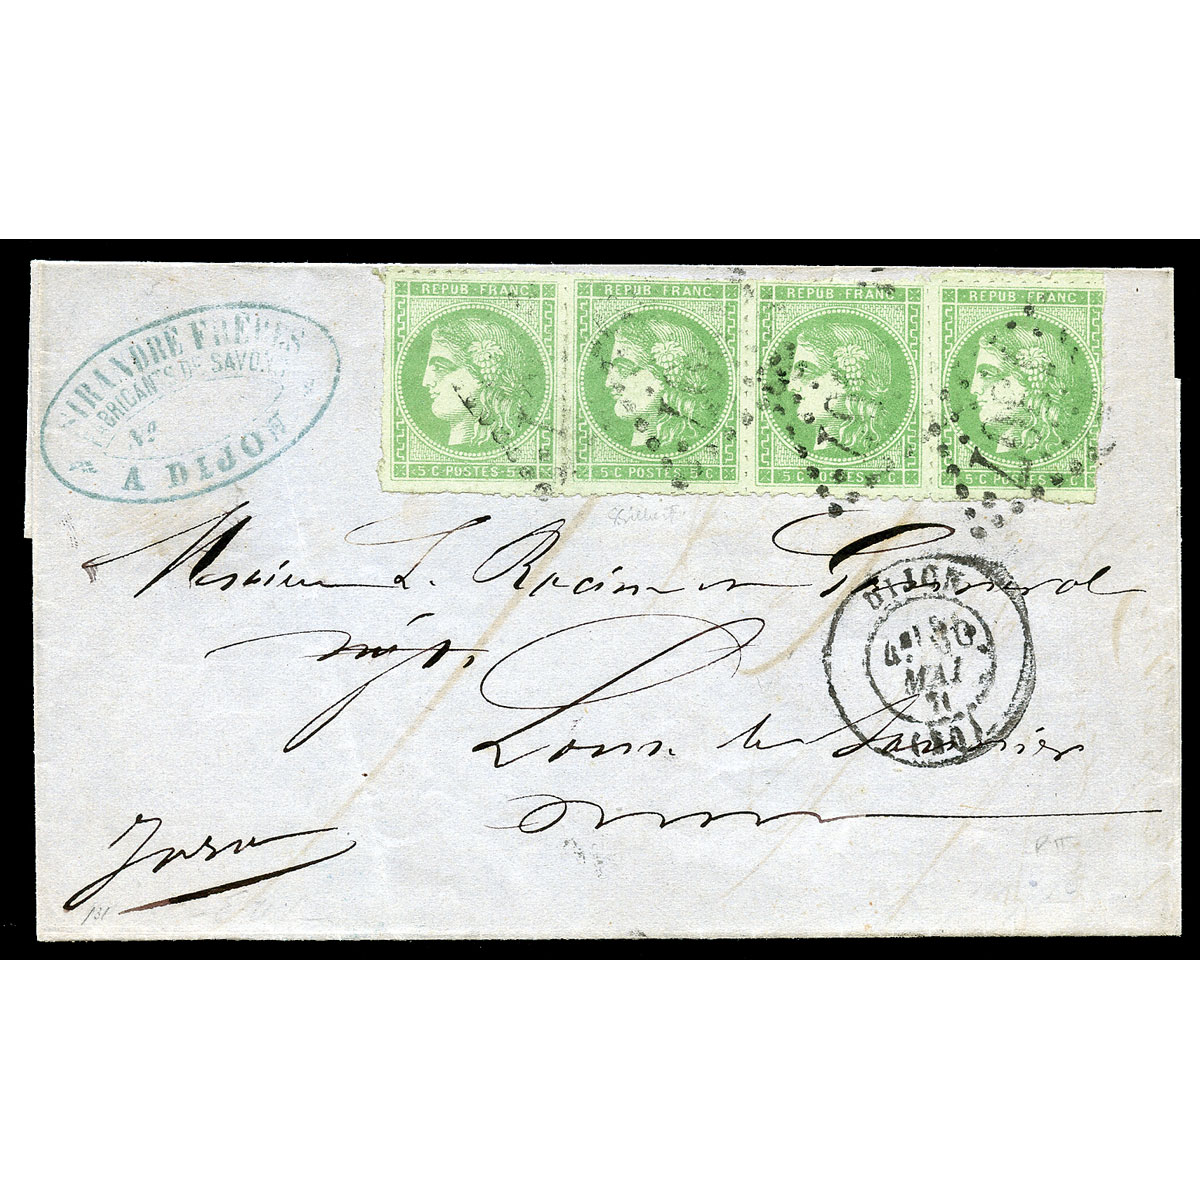 SIRANDRE FRÈRES
FABRICANTS DE SAVON
A DIJON
REPUB·FRANC REPUB·FRANC REPUB·FRANC REPUB·FRANC
5·C·POSTES·5·C 5·C·POSTES·5·C 5·C·POSTES·5·C 5·C·POSTES·5·C
Monsieur L. Racine
négt.
DIJON
MAI
71
(20)
Lons le Saunier
Jura
131